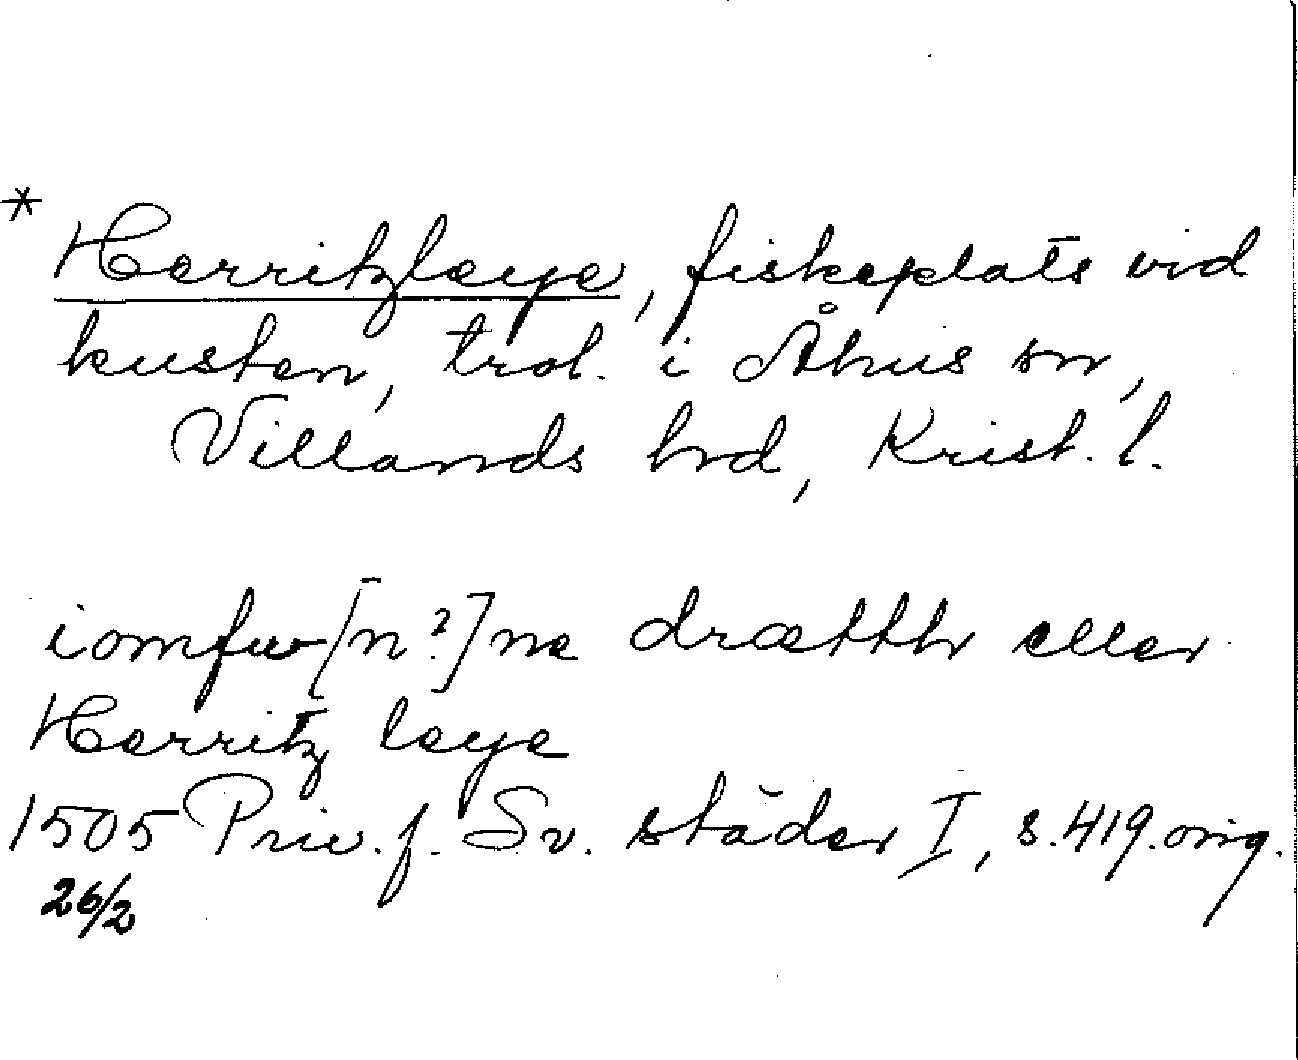 * Herritzleye, fiskeplats vid
kusten, trol. i Åhus sn,
Villands hrd, Krist. l.
iomfrw[n?]ne drættthr eller
Herritz leye
1505 Priv. f. Sv. städer I, s. 419. orig.
26/2